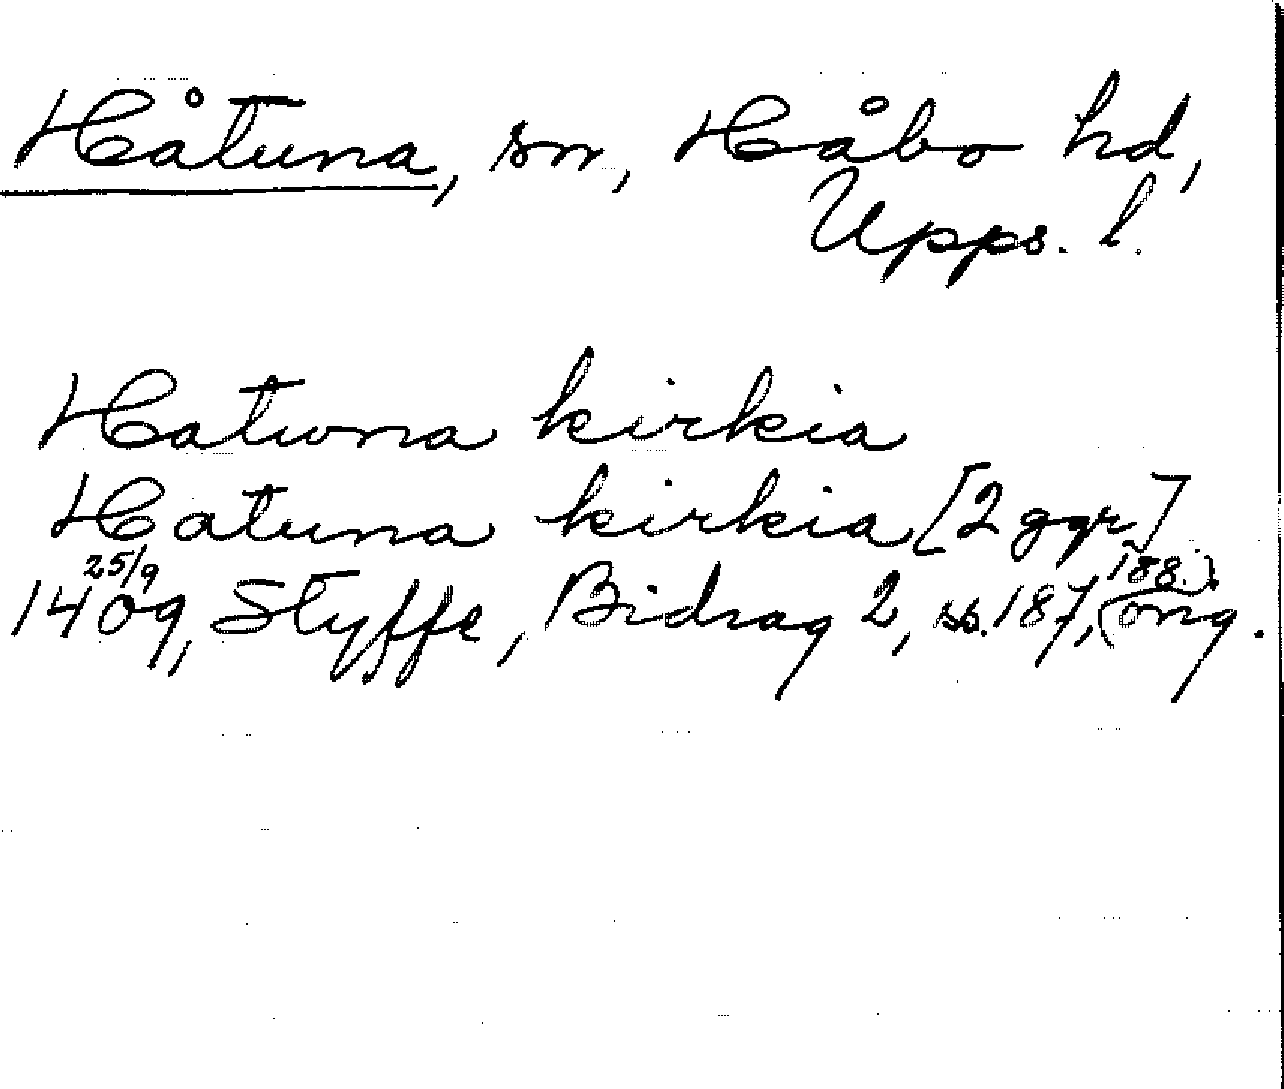 Håtuna, sn, Håbo hd,
Upps. l.
Hatwna kirkia
Hatuna kirkia [2 ggr]
25/9 1409, Styffe, Bidrag 2, ss. 187, 188. (orig.).